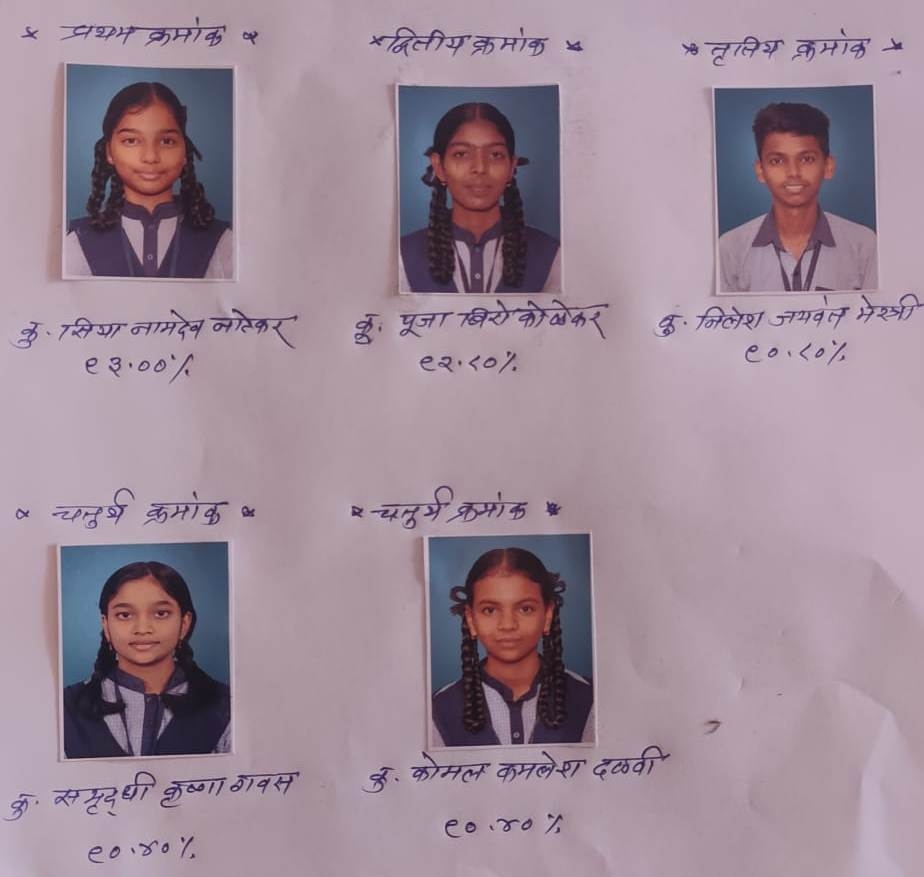 × प्रथम क्रमांक ×
× द्वितीय क्रमांक ×
× तृतिय क्रमांक ×
कु. सिया नामदेव नाटेकर
९३.००%
कु. पूजा बिरो कोळेकर
९२.८०%
कु. निलेश जयवंत मेस्त्री
९०.८०%
× चतुर्थ क्रमांक ×
× चतुर्थ क्रमांक ×
कु. समृद्धी कृष्णा गवस
९०.४०%
कु. कोमल कमलेश दळवी
९०.४०%